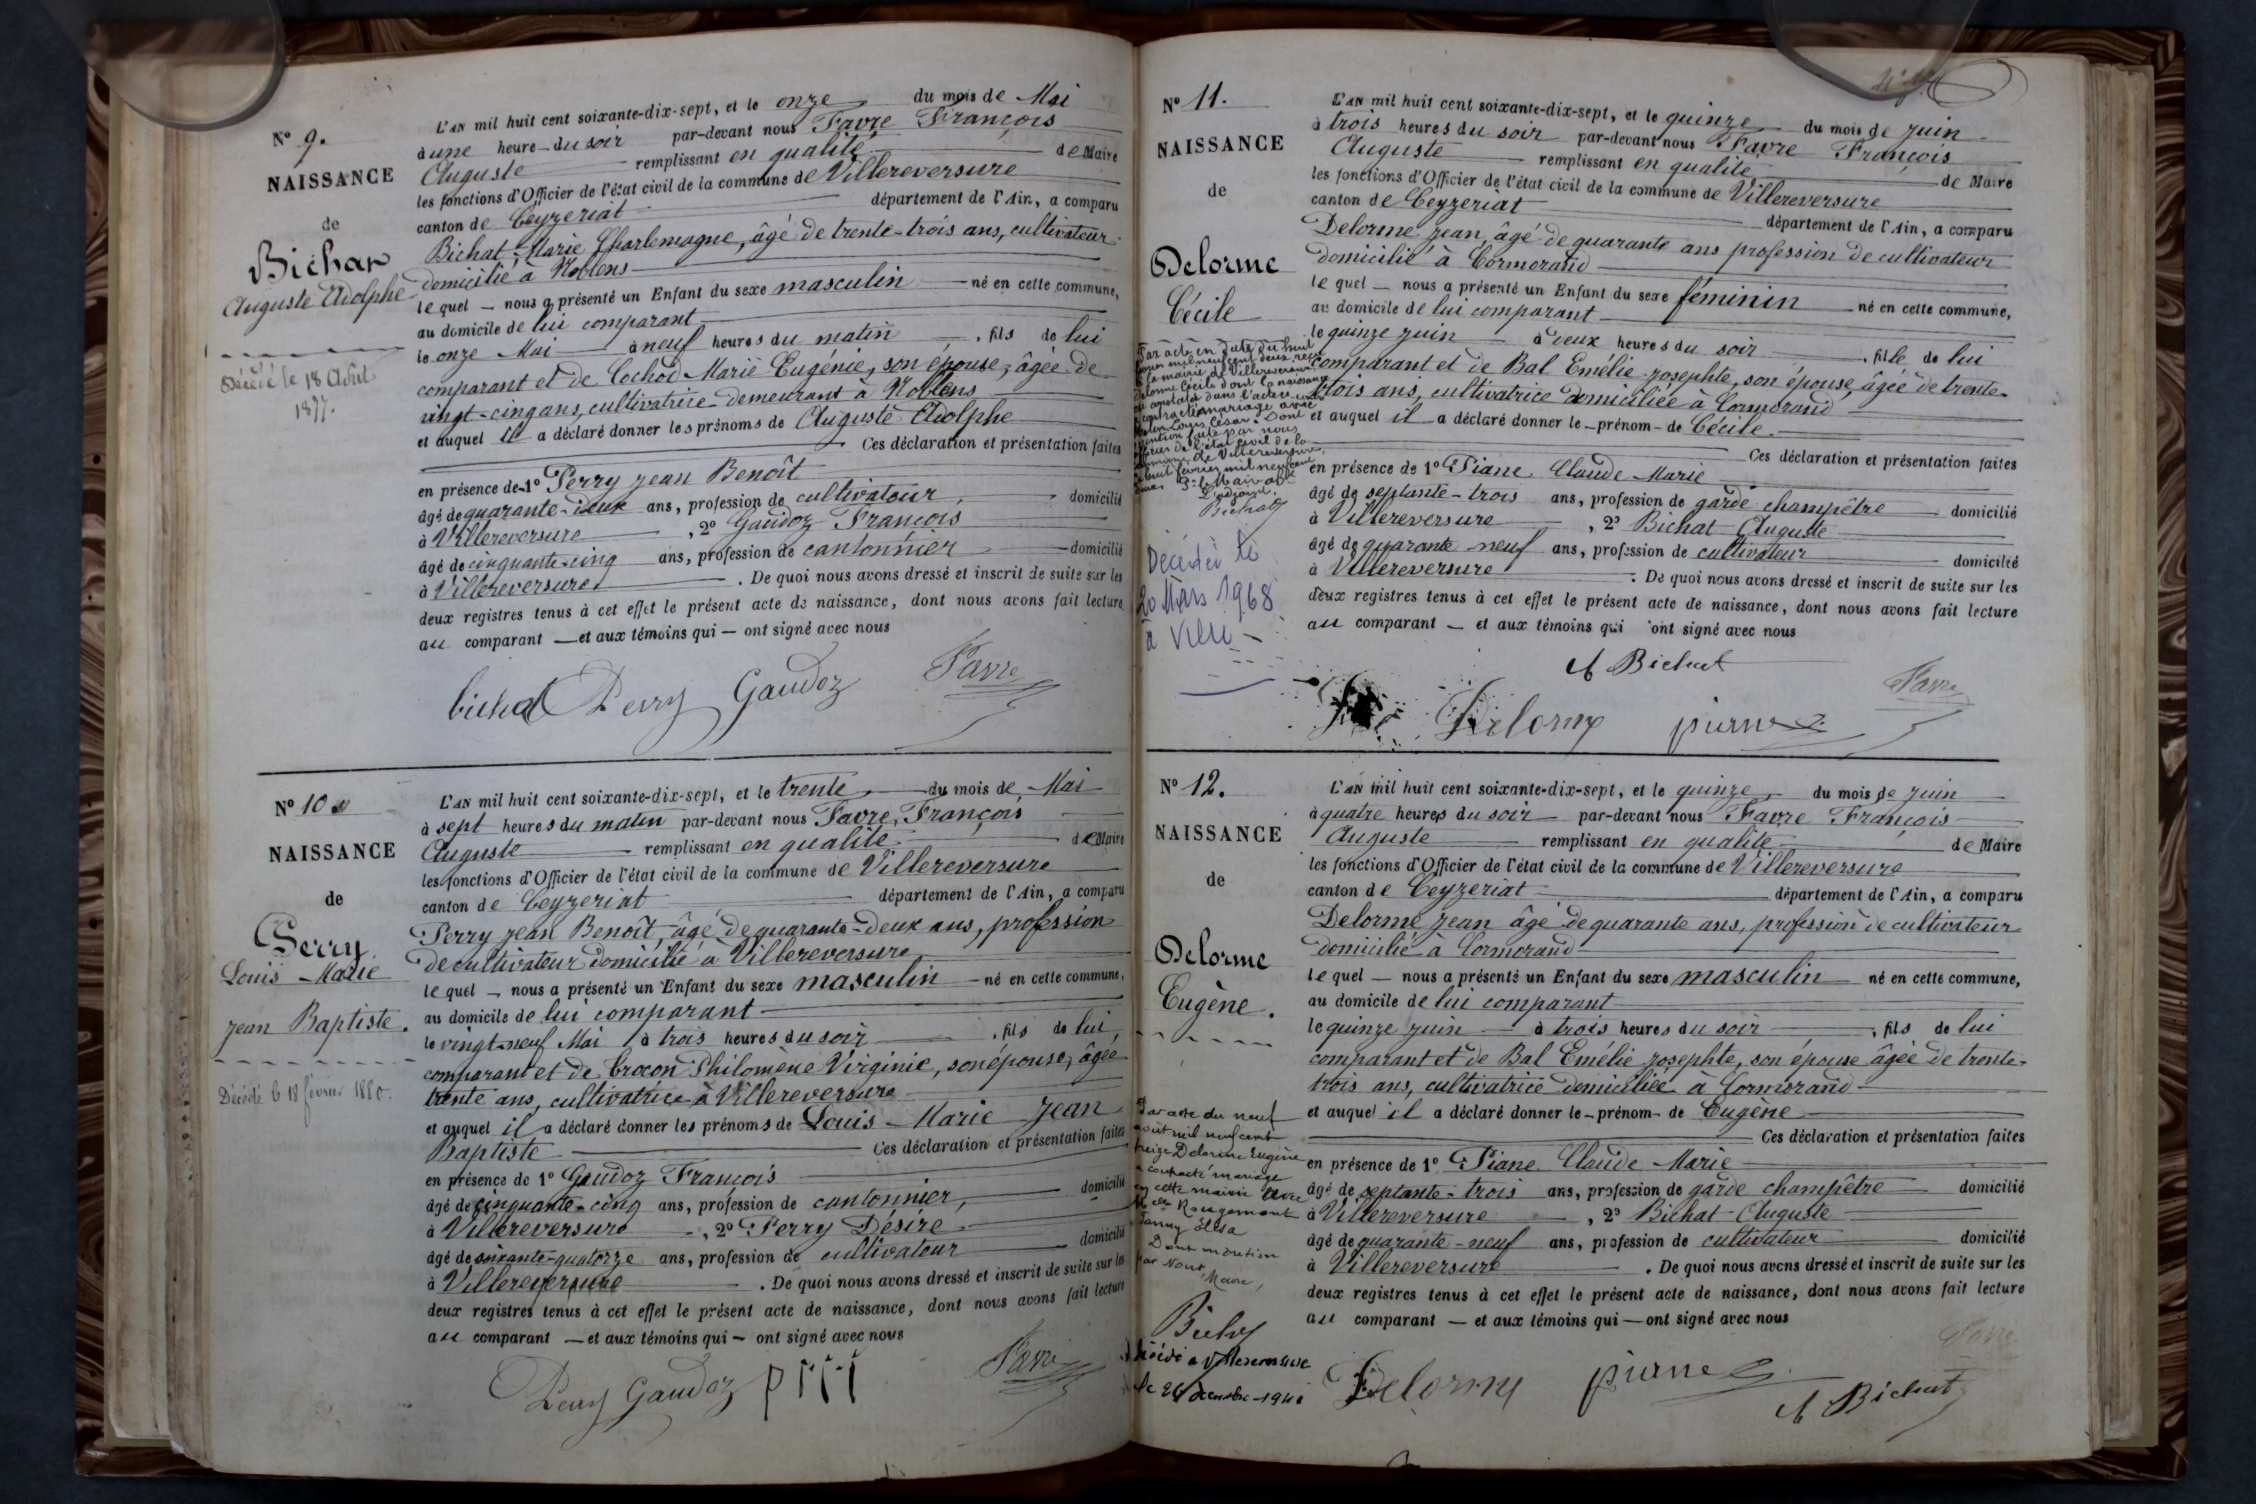 N° 9.
NAISSANCE
de
Bichat
Auguste Adolphe
Décédé le 18 Août
1877.
L'AN mil huit cent soixante-dix-sept, et le onze du mois de Mai
à une heure du soir par-devant nous Favre François
Auguste remplissant en qualité de Maire
les fonctions d'Officier de l'état civil de la commune de Villereversure
canton de Ceyzeriat département de l'Ain, a comparu
Bichat Marie Charlemagne, âgé de trente-trois ans, cultivateur
domicilié à Noblens
lequel nous a présenté un Enfant du sexe masculin né en cette commune,
au domicile de lui comparant
le onze Mai à neuf heures du matin, fils de lui
comparant et de Cochod Marie Eugénie, son épouse, âgée de
vingt-cinq ans, cultivatrice demeurant à Noblens
et auquel il a déclaré donner les prénoms de Auguste Adolphe
Ces déclaration et présentation faites
en présence de 1° Perry Jean Benoît
âgé de quarante-deux ans, profession de cultivateur, domicilié
à Villereversure, 2° Gaudoz François
âgé de cinquante-cinq ans, profession de cantonnier domicilié
à Villereversure. De quoi nous avons dressé et inscrit de suite sur les
deux registres tenus à cet effet le présent acte de naissance, dont nous avons fait lecture
au comparant — et aux témoins qui — ont signé avec nous
bichat Perry Gaudoz Favre
N° 10
NAISSANCE
de
Perry
Louis-Marie
Jean Baptiste.
Décédé le 18 février 1880.
L'AN mil huit cent soixante-dix-sept, et le trente du mois de Mai
à sept heures du matin par-devant nous Favre, François
Auguste remplissant en qualité de Maire
les fonctions d'Officier de l'état civil de la commune de Villereversure
canton de Ceyzeriat département de l'Ain, a comparu
Perry Jean Benoît âgé de quarante-deux ans, profession
de cultivateur domicilié à Villereversure
lequel — nous a présenté un Enfant du sexe masculin — né en cette commune,
au domicile de lui comparant
le vingt-neuf Mai à trois heures du soir, fils de lui
comparant et de Crocon Philomène Virginie, son épouse, âgée
trente ans, cultivatrice à Villereversure
et auquel il a déclaré donner les prénoms de Louis-Marie Jean
Baptiste Ces déclaration et présentation faites
en présence de 1° Gaudoz François
âgé de cinquante-cinq ans, profession de cantonnier, domicilié
à Villereversure, 2° Perry Désiré
âgé de soixante-quatorze ans, profession de cultivateur domicilié
à Villereversure. De quoi nous avons dressé et inscrit de suite sur les
deux registres tenus à cet effet le présent acte de naissance, dont nous avons fait lecture
au comparant — et aux témoins qui — ont signé avec nous
Perry Gaudoz Favre
N° 11.
NAISSANCE
de
Delorme
Cécile
Par acte en date du huit
à la mairie de Villereversure
Delorme Cécile dont la naissance
est constatée dans l'acte
contracté mariage avec
Louis César. Dont
mention faite par nous
officier de l'état civil de la
commune de Villereversure
huit février mil neuf cent
L'adjoint.
Bichat
Décédée le
20 Mars 1968
à
L'AN mil huit cent soixante-dix-sept, et le quinze du mois de Juin
à trois heures du soir par-devant nous Favre François
Auguste remplissant en qualité de Maire
les fonctions d'Officier de l'état civil de la commune de Villereversure
canton de Ceyzeriat département de l'Ain, a comparu
Delorme Jean âgé de quarante ans profession de cultivateur
domicilié à Cormorand
lequel — nous a présenté un Enfant du sexe féminin né en cette commune,
au domicile de lui comparant
le quinze Juin à deux heures du soir, fille de lui
comparant et de Bal Emélie Josephte, son épouse, âgée de trente-
trois ans, cultivatrice domiciliée à Cormorand
et auquel il a déclaré donner le — prénom — de Cécile.
Ces déclaration et présentation faites
en présence de 1° Piane Claude Marie
âgé de septante-trois ans, profession de garde champêtre domicilié
à Villereversure, 2° Bichat Auguste
âgé de quarante neuf ans, profession de cultivateur domicilié
à Villereversure. De quoi nous avons dressé et inscrit de suite sur les
deux registres tenus à cet effet le présent acte de naissance, dont nous avons fait lecture
au comparant — et aux témoins qui ont signé avec nous
A Bichat
Delorme piane Favre
N° 12.
NAISSANCE
de
Delorme
Eugène.
Par acte du neuf
août mil neuf cent
treize Delorme Eugène
a contracté mariage
en cette mairie avec
Rougemont
Fanny Elisa
Dont mention
par Nous,
Maire,
Bichat
Décédé à Villereversure
L'AN mil huit cent soixante-dix-sept, et le quinze du mois de Juin
à quatre heures du soir par-devant nous Favre François
Auguste remplissant en qualité de Maire
les fonctions d'Officier de l'état civil de la commune de Villereversure
canton de Ceyzeriat département de l'Ain, a comparu
Delorme Jean âgé de quarante ans, profession de cultivateur
domicilié à Cormorand
lequel — nous a présenté un Enfant du sexe masculin né en cette commune,
au domicile de lui comparant
le quinze Juin à trois heures du soir, fils de lui
comparant et de Bal Emélie Josephte, son épouse âgée de trente-
trois ans, cultivatrice domiciliée à Cormorand
et auquel il a déclaré donner le — prénom — de Eugène
Ces déclaration et présentation faites
en présence de 1° Piane Claude Marie
âgé de septante-trois ans, profession de garde champêtre domicilié
à Villereversure, 2° Bichat Auguste
âgé de quarante-neuf ans, profession de cultivateur domicilié
à Villereversure. De quoi nous avons dressé et inscrit de suite sur les
deux registres tenus à cet effet le présent acte de naissance, dont nous avons fait lecture
au comparant — et aux témoins qui — ont signé avec nous
Delorme piane Favre
A Bichat